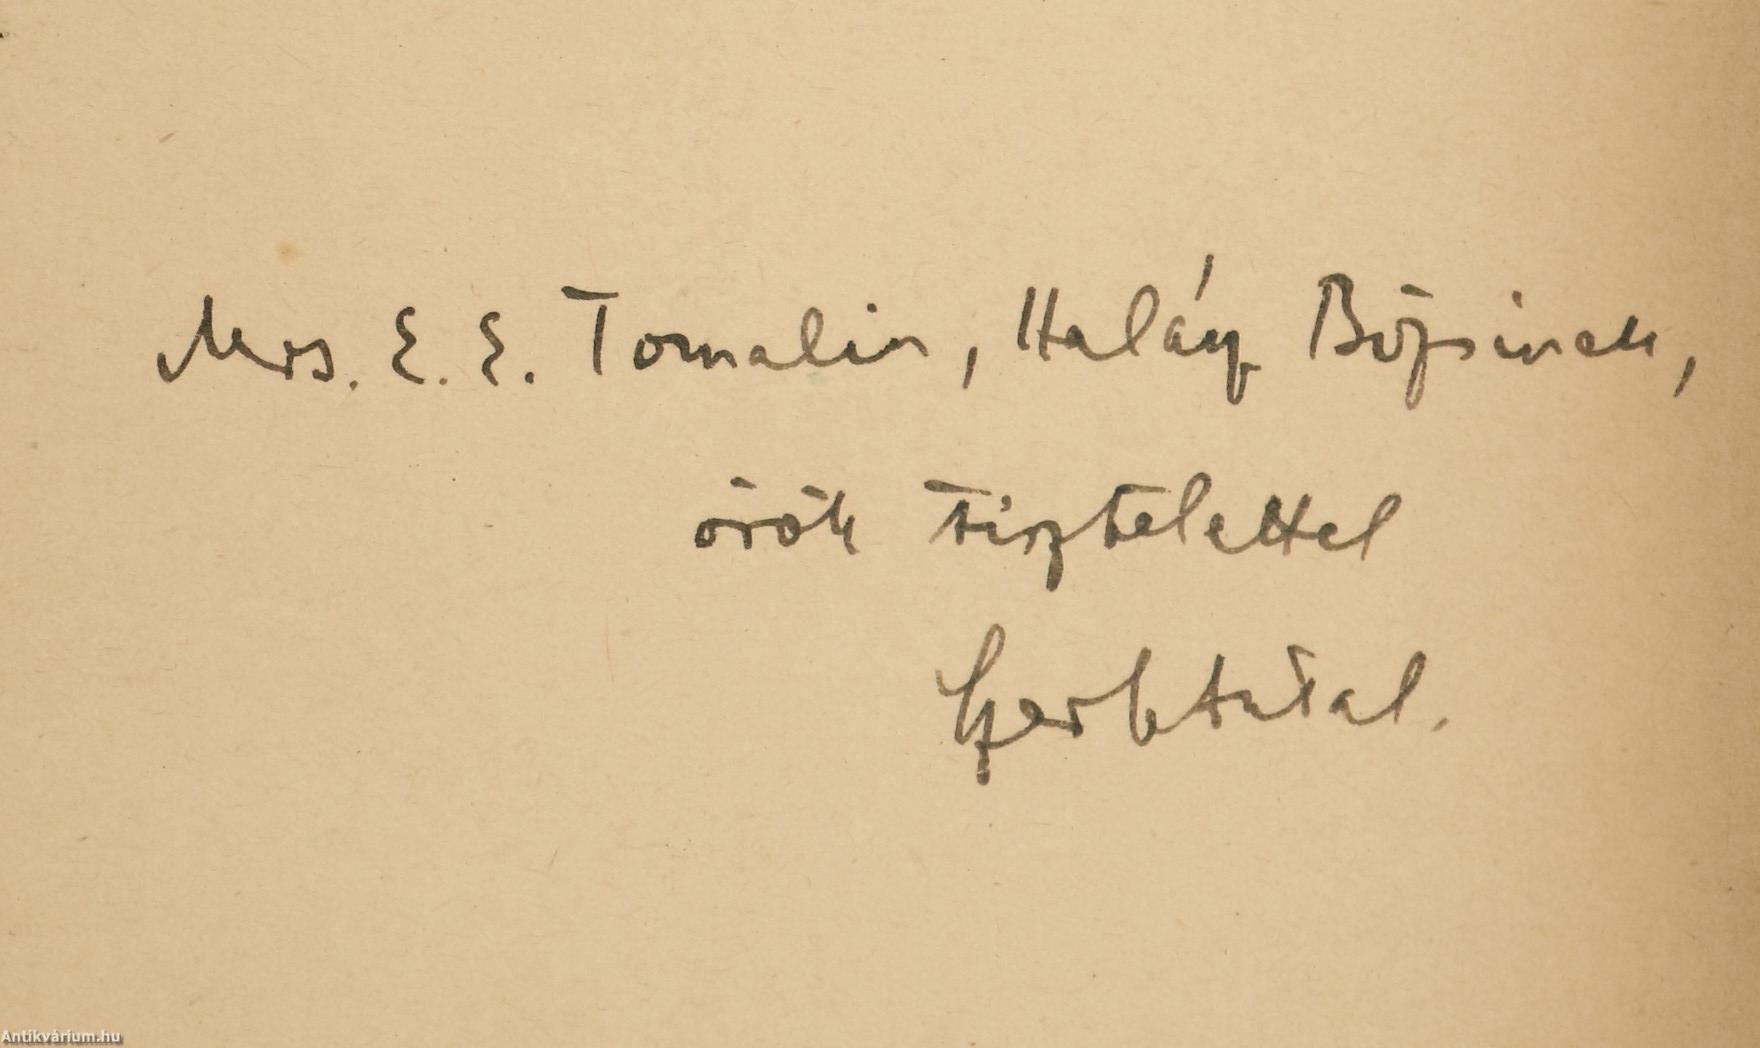 Mrs. E. E. Tomalin, Halász Bözsinek,
örök tisztelettel
Szerb Antal.
Antikvárium.hu